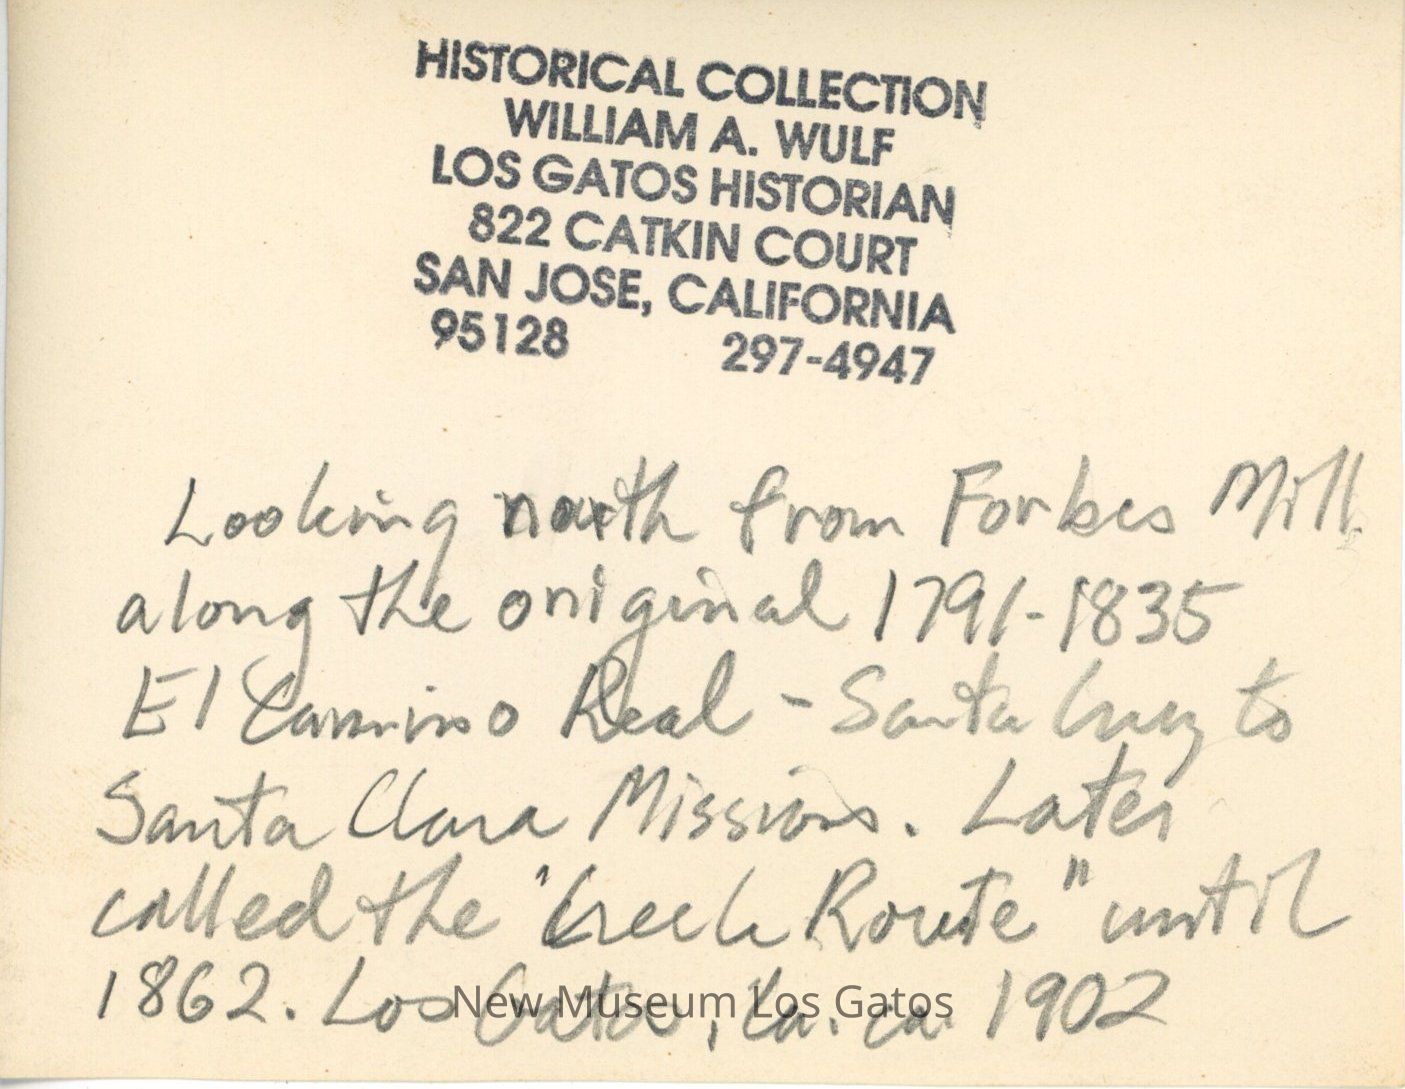 HISTORICAL COLLECTION
WILLIAM A. WULF
LOS GATOS HISTORIAN
822 CATKIN COURT
SAN JOSE, CALIFORNIA
95128 297-4947
Looking north from Forbes Mill
along the original 1791-1835
El Camino Real - Santa Cruz to
Santa Clara Missions. Later
called the "Creek Route" until
1862. Los Gatos, Ca. ca. 1902
New Museum Los Gatos